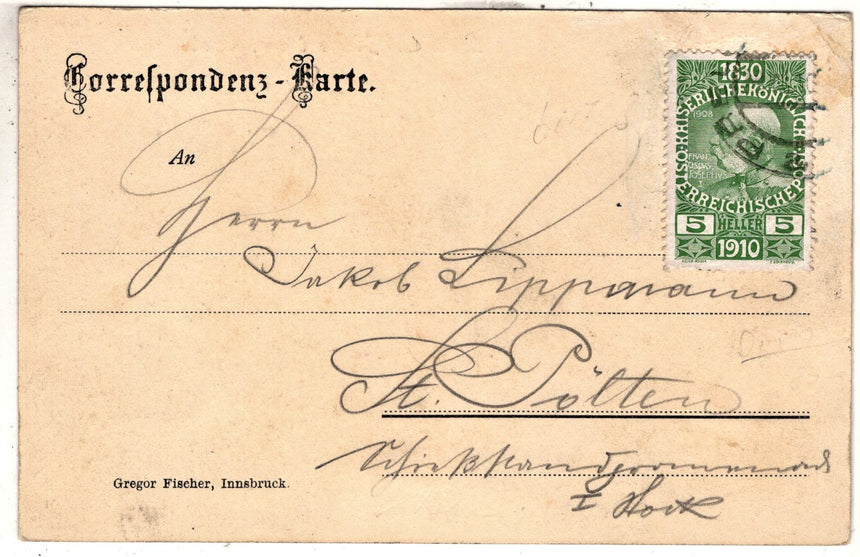 Correspondenz-Karte.
1830
KAISERLICHE KÖNIGLICHE
1908
FRAN
CISCVS
JOSEPHVS
I
ÖSTERREICHISCHE POST
5 HELLER 5
1910
An
Herrn
Jakob Lippmann
St. Pölten
Schießstandpromenade
I Stock
Gregor Fischer, Innsbruck.